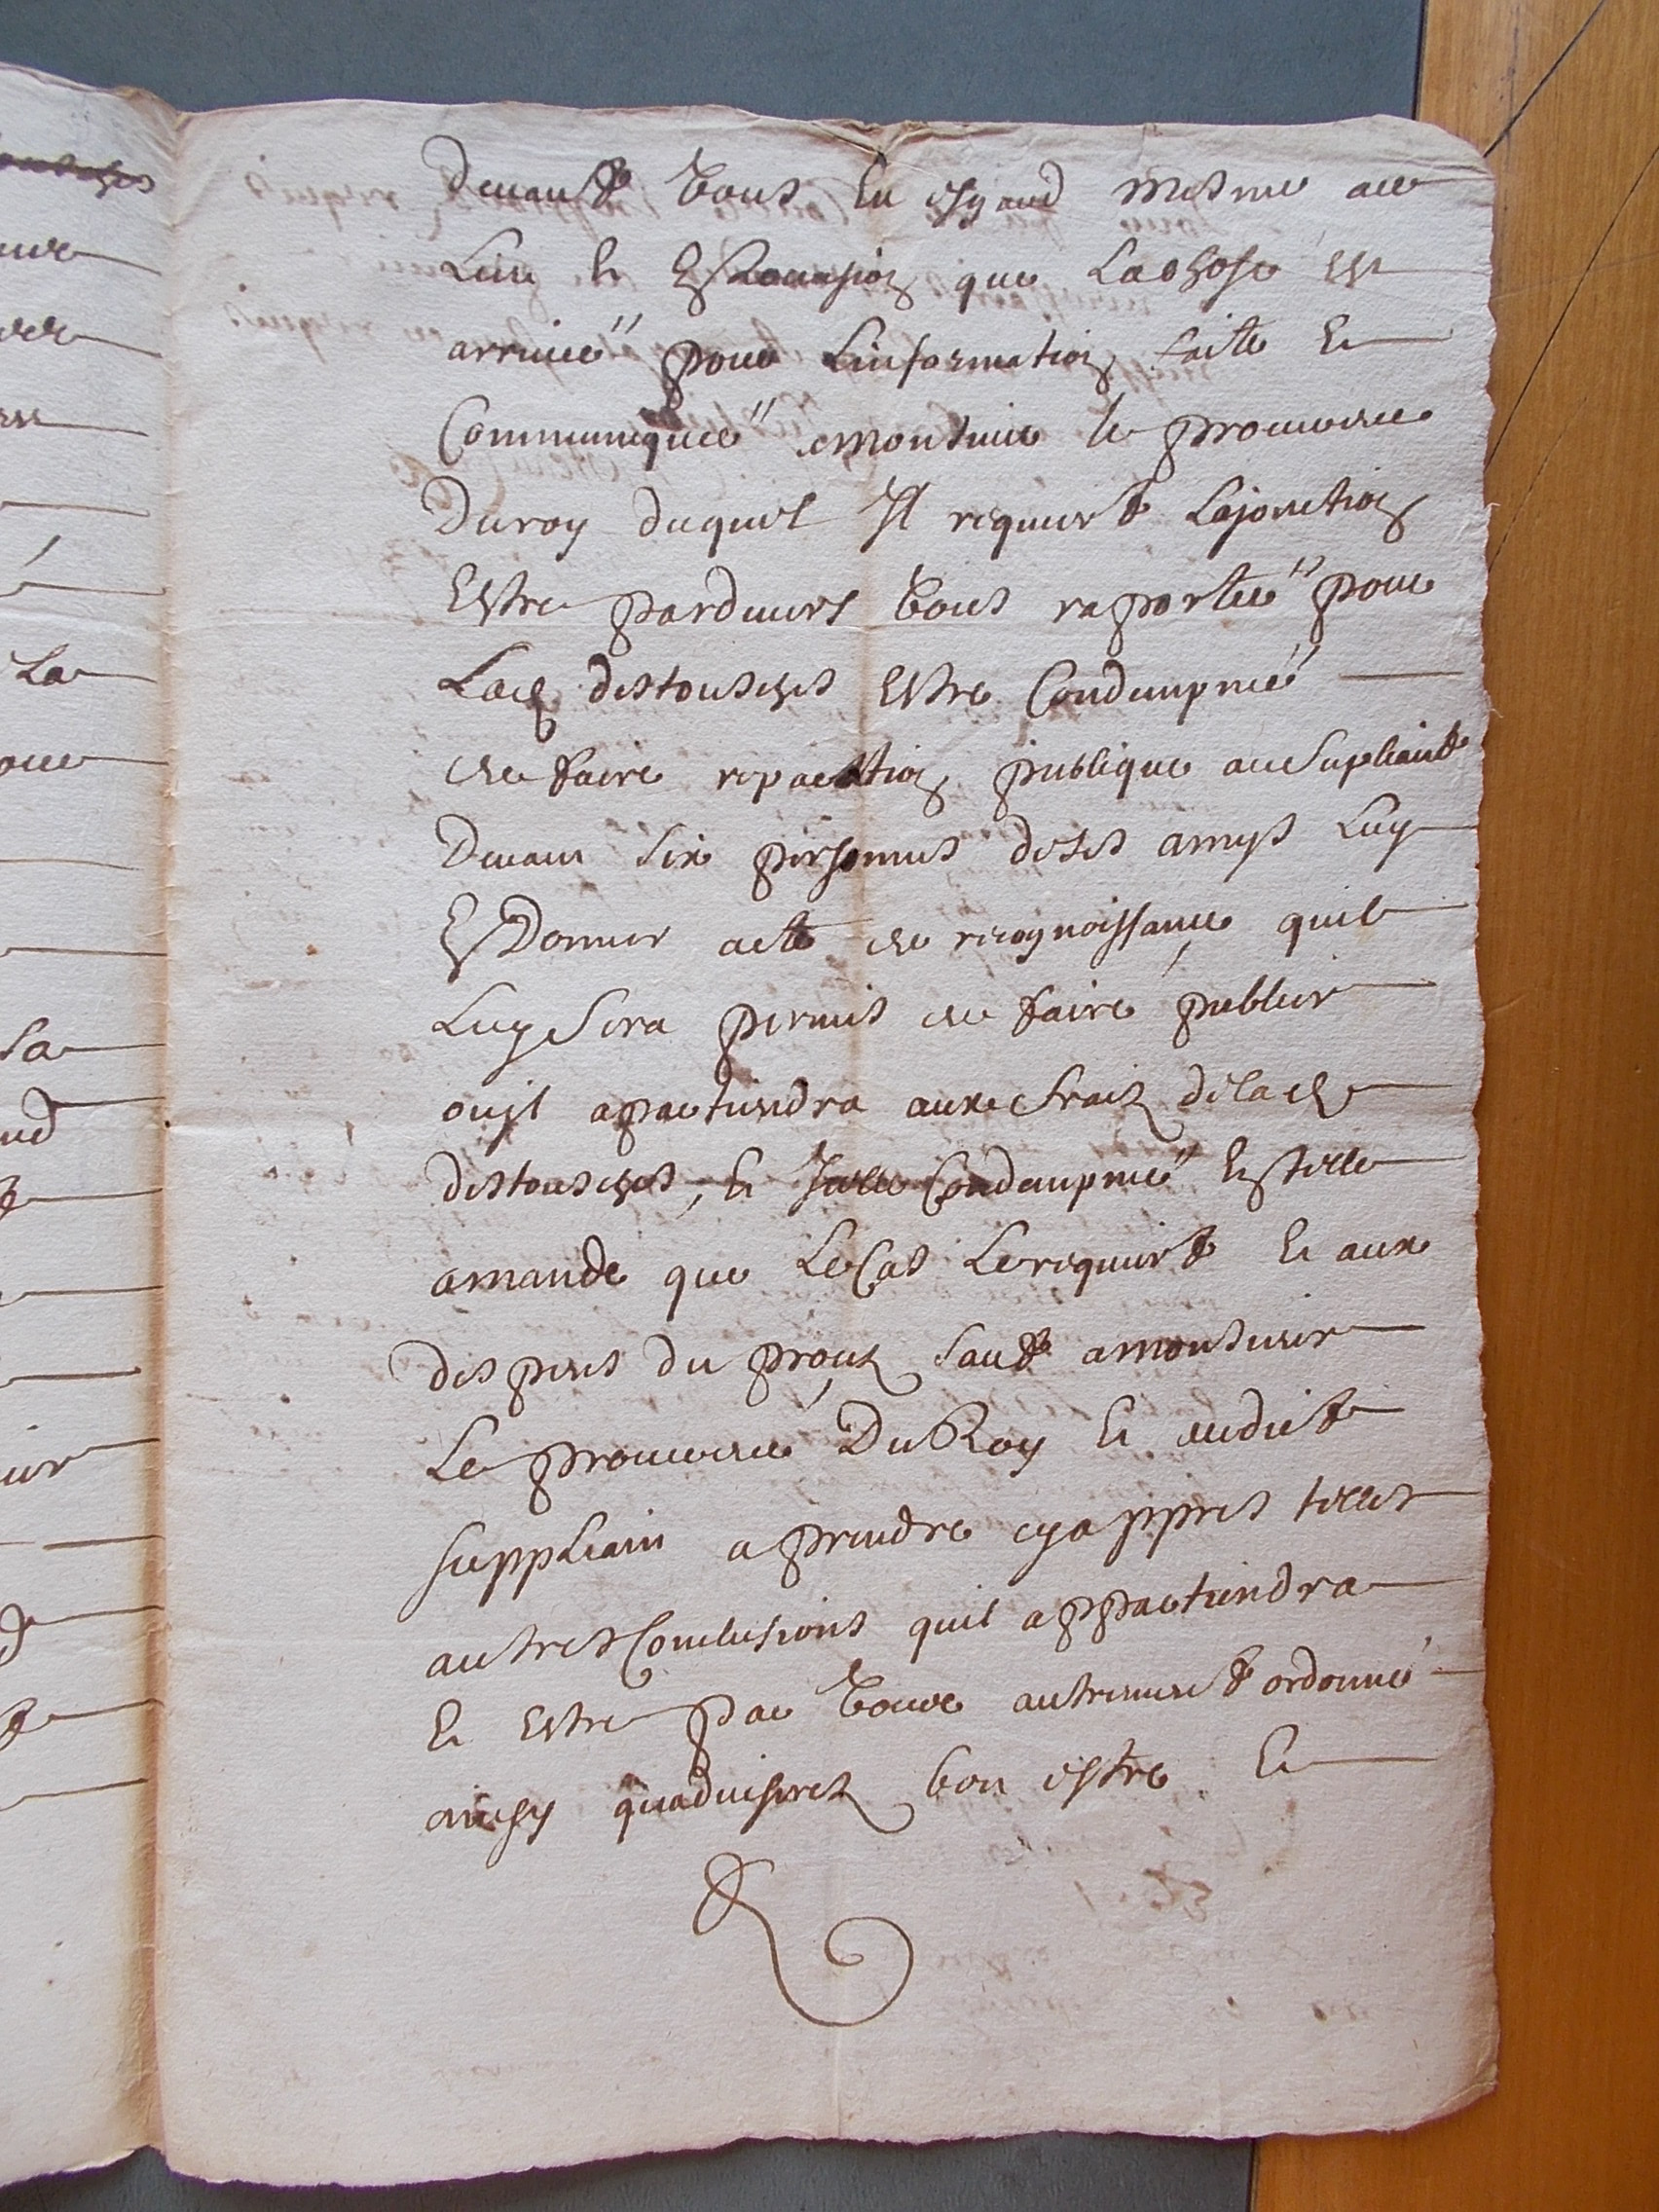 Devant vous eu esgard mesme au
Lieu & Loccasion que La chose est
arriuee pour Linformation faite et
Communiquee a monsieur le procureur
Du roy duquel Il requiert Lajonction
Estre pardeuers vous raportee pour
Lad destousches Estre Condempnée
de faire reparation publique au supliant
Devant six personnes de ses amys Luy
En Donner acte de recognoissance quil
Luy sera permis de faire publier
ou jl apartiendra aux fraiz de lad
destousches, et Icelle Condempnée En telle
amande que Le Cas Le requiert et aux
despens du procez sauf a monsieur
Le procureur Du Roy et audict
suppliant a prendre cy appres telles
autres Conclusions quil appartiendra
Et Estre par vous autrement ordonné
ainsy quaduiserez bon estre Et